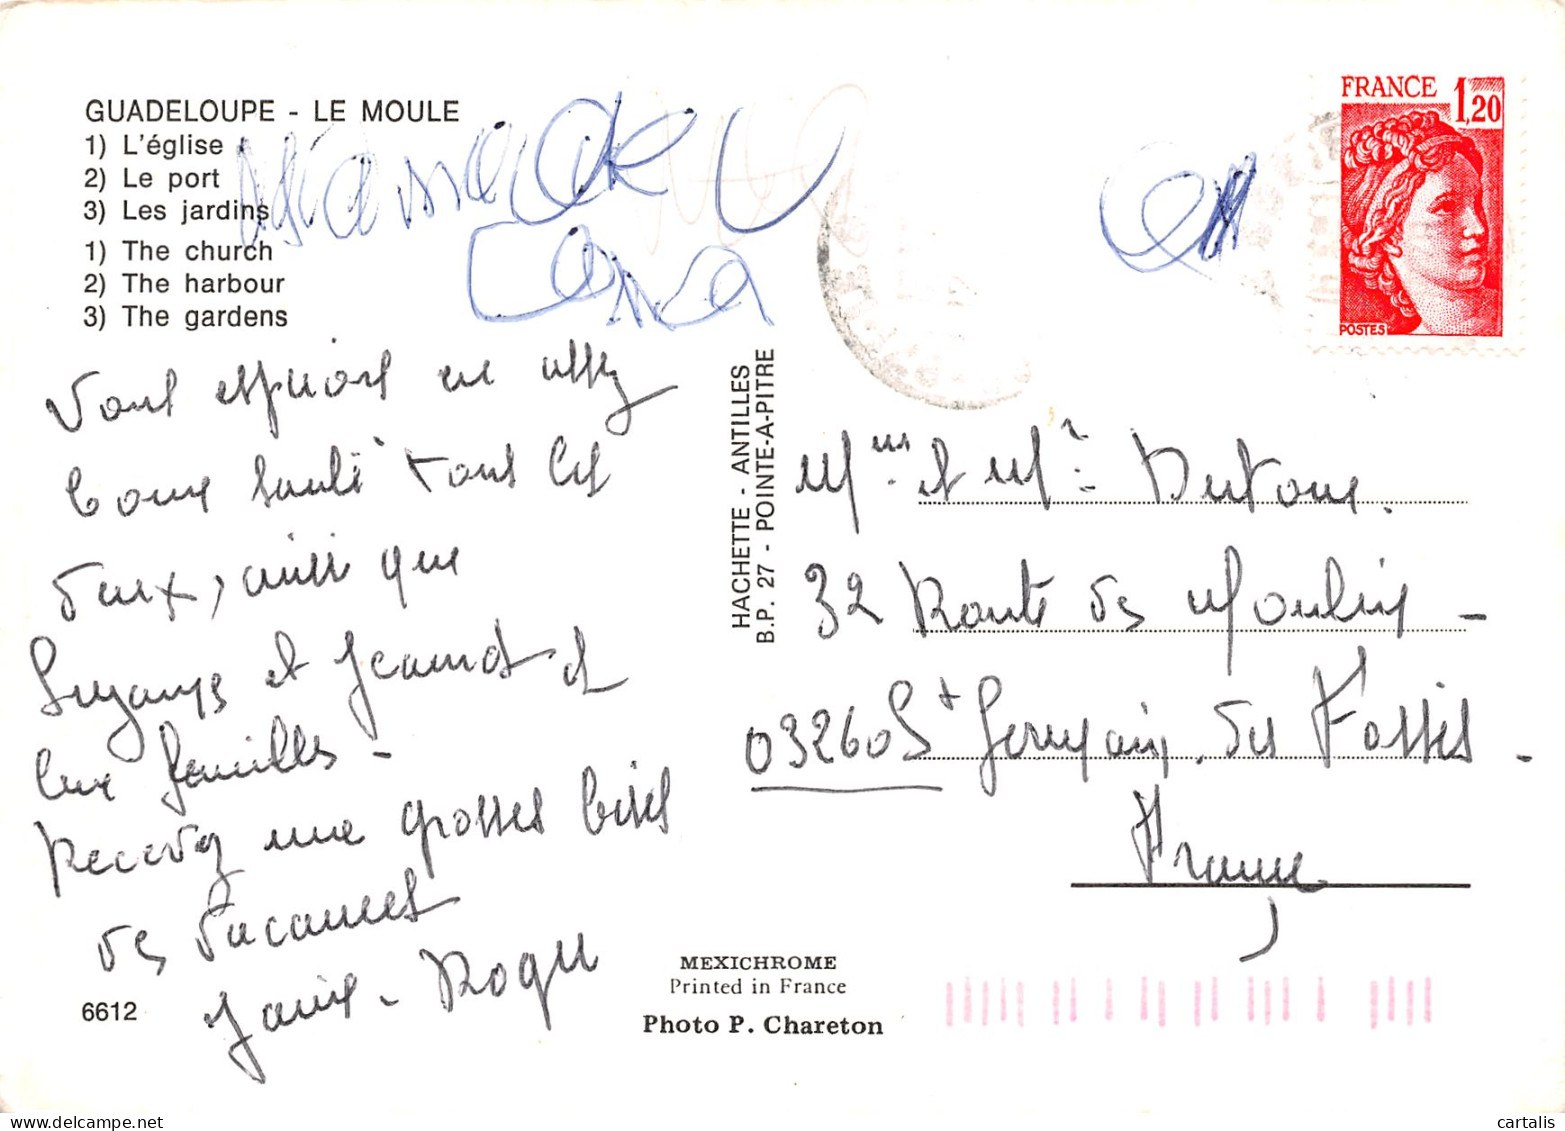 GUADELOUPE - LE MOULE
1) L'église
2) Le port
3) Les jardins
1) The church
2) The harbour
3) The gardens
en assez
bonne santé tous les
deux, ainsi que
Suzanne et et
familles -
Recevez une grosses bises
des vacances
- Roger
6612
HACHETTE - ANTILLES
B.P. 27 - POINTE-A-PITRE
MEXICHROME
Printed in France
Photo P. Chareton
FRANCE 1,20
POSTES
et
32 Route de Moulins -
03260 St Germain des Fossés -
France
cartalis
www.delcampe.net